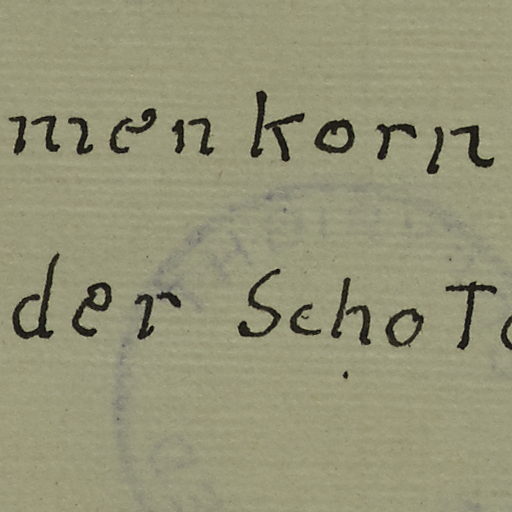 menkorn
der Schote